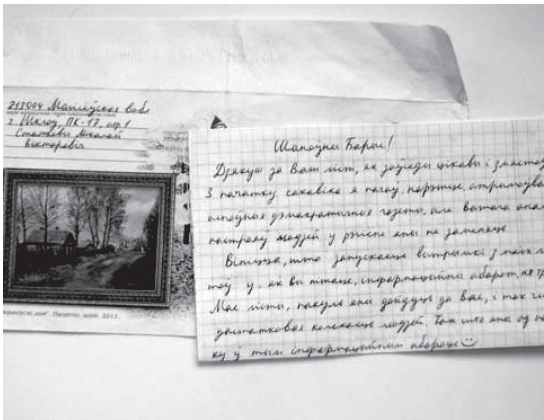 213004 Магілёўская вобл.
г. Шклоў, ПК-17, атр. 1
Статкевіч Мікалай
Віктаравіч
Шаноўны Барыс!
Дзякуй за Ваш ліст, як заўсёды цікавы і змястоў
З пачатку сакавіка я пачаў, нарэшце, атрымлівац
асноўныя дэмакратычныя газеты, але Вашага
настрою людзей у рэгіёне яны не заменяць.
Вітаю, што запускаеце вытрымкі з маіх лі
тоў у, як вы пішаце, інфармацыйны абарот,
Мае лісты, пакуль яны дойдуць да Вас, і так чы
дастатковая колькасць людзей. Так што яны ўжо
ку ў тым інфармацыйным абароце
дом". Палатно, алей. 2011.